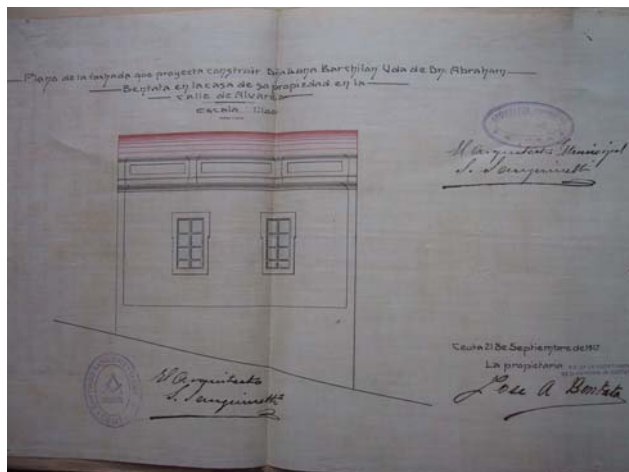 Plano de la fachada que proyecta construir Barchilan Vda de Dn. Abraham
Bentata en la casa de su propiedad en la
Calle de Alvarez
Escala
El Arquitecto Municipal
S. Sanguinetti
Ceuta 21 de Septiembre de
La propietaria
Jose A Bentata
El Arquitecto
S. Sanguinetti